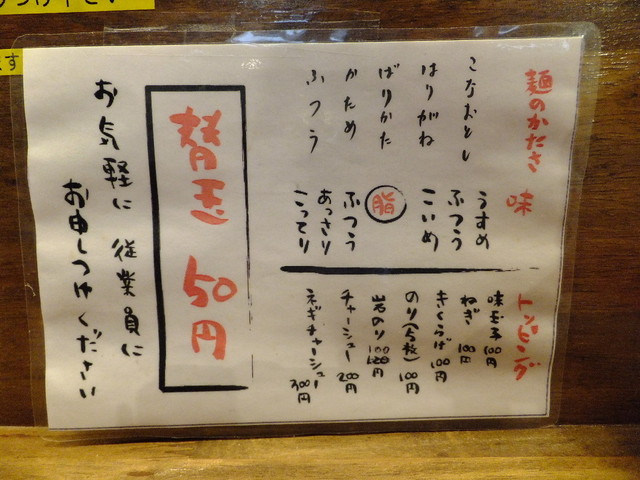 麺のかたさ
こなおとし
はりがね
ばりかた
かため
ふつう
味
うすめ
ふつう
こいめ
脂
ふつう
あっさり
こってり
トッピング
味玉子 100円
ねぎ 100円
きくらげ 100円
のり(5枚) 100円
岩のり 100円
チャーシュー 200円
ネギチャーシュー 300円
替玉 50円
お気軽に従業員に
お申しつけください
ます